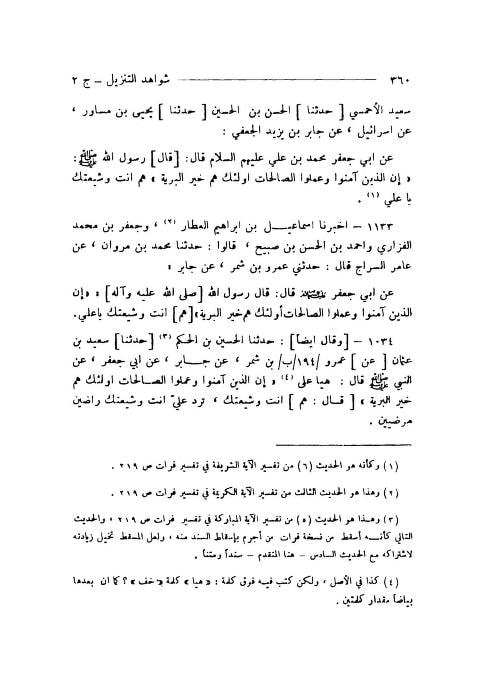 ٣٦٠ شواهد التنزيل – ج ٢
سعيد الأحمسي [ حدثنا ] الحسن بن الحسين [ حدثنا ] يحيى بن مساور ،
عن اسرائيل ، عن جابر بن يزيد الجعفي :
عن ابي جعفر محمد بن علي عليهم السلام قال: [قال] رسول الله ﷺ :
« إن الذين آمنوا وعملوا الصالحات اولئك هم خير البرية » هم انت وشيعتك
يا علي (١) .
١١٣٣ – اخبرنا اسماعيل بن ابراهيم العطار (٢) ، وجعفر بن محمد
الفزاري واحمد بن الحسن بن صبيح ، قالوا : حدثنا محمد بن مروان ، عن
عامر السراج قال : حدثني عمرو بن شمر ، عن جابر »
عن ابي جعفر قال: قال رسول الله [صلى الله عليه وآله] » «إن
الذين آمنوا وعملوا الصالحات أولئك هم خير البرية»[هم] انت وشيعتك ياعلي.
١٠٣٤ – [وقال ايضاً] : حدثنا الحسين بن الحكم (٣) [حدثنا] سعيد بن
عثمان [ عن ] عمرو /١٩٤/ب/ بن شمر ، عن جابر ، عن ابي جعفر ، عن
النبي ﷺ قال : هيا علي (٤) « إن الذين آمنوا وعملوا الصالحات اولئك هم
خير البرية » [ قال : هم ] انت وشيعتك ، ترد عليّ انت وشيعتك راضين
مرضيين .
(١) وكأنه هو الحديث (٦) من تفسير الآية الشريفة في تفسير فرات ص ٢١٩ .
(٢) وهذا هو الحديث الثالث من تفسير الآية الكريمة في تفسير فرات ص ٢١٩ .
(٣) وهذا هو الحديث (٥) من تفسير الآية المباركة في تفسير فرات ص ٢١٩ ، والحديث
التالي كأنه أسقط من نسخة فرات من أجرم بإسقاط السند منه ، ولعل المسقط تخيل زيادته
لاشتراكه مع الحديث السادس – هنا المتقدم – سنداً ومتناً .
(٤) كذا في الأصل ، ولكن كتب فيه فوق كلمة : «هيا» كلمة «خف» ؟ كما ان بعدها
بياضاً مقدار كلمتين .